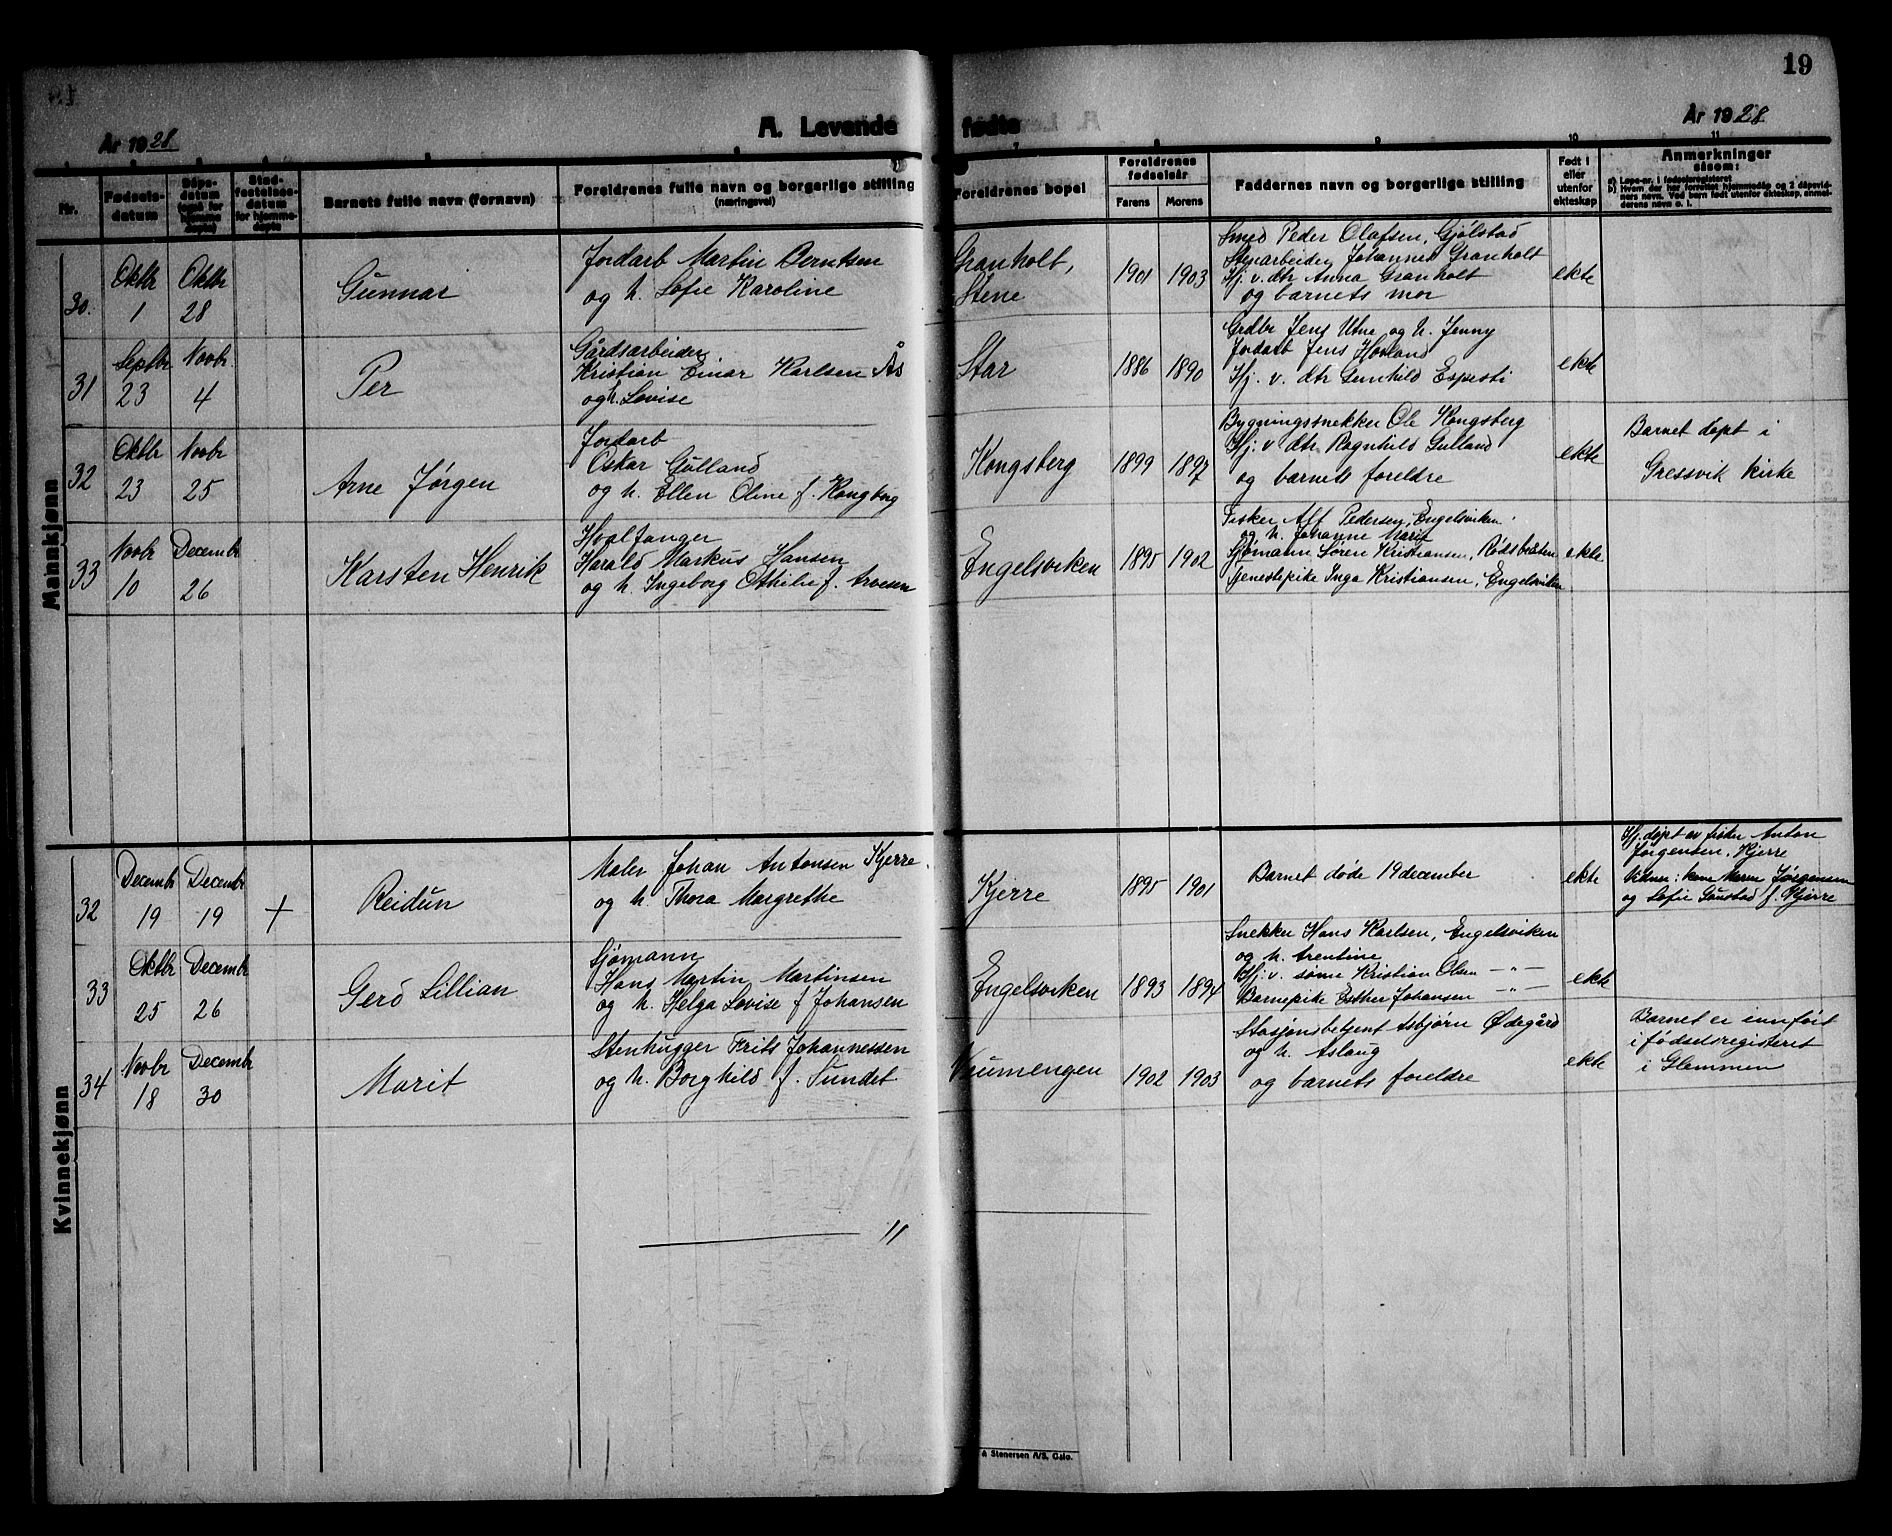 19
År 1928
A. Levende fødte
År 1928
Nr.
Fødselsdatum
Dåpsdatum
Stadfestelsesdatum for hjemmedøpte
Barnets fulle navn (fornavn)
Foreldrenes fulle navn og borgerlige stilling
(næringsvei)
7 8 9 10 11
Foreldrenes bopel
Foreldrenes fødselsår
Farens Morens
Faddernes navn og borgerlige stilling
Født i eller utenfor ekteskap
Anmerkninger
såsom:
a) Løpe-nr. i fødselsregisteret
b) Hvem der har forrettet hjemmedåp og 2 dåpsvidners navn. Ved barn født utenfor ekteskap, anmelderens navn o. l.
Mannkjønn
30.
Oktbr 1
Oktbr 28
Gunnar
Jordarb Martin Berntsen
og h. Sofie Karoline
Granholt,
Stene
1901 1903
Smed Peder Olafsen, Gjølstad
Stenarbeider Johannes Granholt
Hj. v. dtr Anna Granholt
og barnets mor
ekte
31
Septbr 23
Novbr 4
Per
Gårdsarbeider
Kristian Einar Karlsen Ås
og h. Lovise
Star
1886 1890
Grdbr Jens Utne og h. Jenny
Jordarb Jens Hovland
Hj. v. dtr Gunhild Espesti
ekte
32
Oktbr 23
Novbr 25
Arne Jørgen
Jordarb
Oskar Gulland
og h. Ellen Oline f. Kongberg
Kongsberg
1899 1897
Bygningssnekker Ole Kongsberg
Hj. v. dtr Ragnhild Gulland
og barnets foreldre
ekte
Barnet døpt i
Gressvik kirke
33
Novbr 10
Decembr 26
Karsten Henrik
Hvalfanger
Harald Markus Hansen
og h. Ingeborg Othilie f. Arvesen
Engelsviken
1895 1902
Fisker Alf Pedersen, Engelsviken
og h. Johanne Marit
Sjømann Søren Kristiansen, Rødsbråten
Tjenestepike Inga Kristiansen, Engelsviken
ekte
Kvinnekjønn
32
Decembr 19
Decembr 19
+
Reidun
Maler Johan Antonsen Kjerre
og h. Thora Margrethe
Kjerre
1895 1901
Barnet døde 19 december
ekte
Hj. døpt av fisker Anton
Jørgensen, Kjerre
Vidner: kone Maren Jørgensen
og Sofie Gunstad f. Kjerre
33
Oktbr 25
Decembr 26
Gerd Lillian
Sjømann
Hans Martin Martinsen
og h. Helga Lovise f Johansen
Engelsviken
1893 1894
Snekker Hans Karlsen, Engelsviken
og h. Arentine
Hj. v. sønn Kristian Olsen — " —
Barnepike Esther Johansen — " —
ekte
34
Novbr 18
Decembr 30
Marit
Stenhugger Frits Johannessen
og h. Borghild f. Sundet
Veumengen
1902 1903
Stasjonsbetjent Asbjørn Ødegård
og h. Aslaug
og barnets foreldre
ekte
Barnet er innført
i fødselsregisteret
i Glemmen
11
& Stenersen A/S, Oslo.